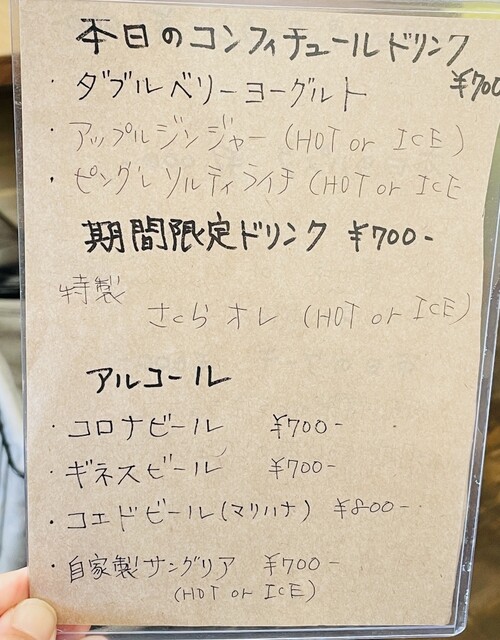 本日のコンフィチュールドリンク
・ダブルベリーヨーグルト ¥700
・アップルジンジャー (HOT or ICE)
・ピングレソルティライチ (HOT or ICE
期間限定ドリンク ¥700-
特製
さくらオレ (HOT or ICE)
アルコール
・コロナビール ¥700-
・ギネスビール ¥700-
・コエドビール(マリハナ) ¥800-
・自家製サングリア ¥700-
(HOT or ICE)